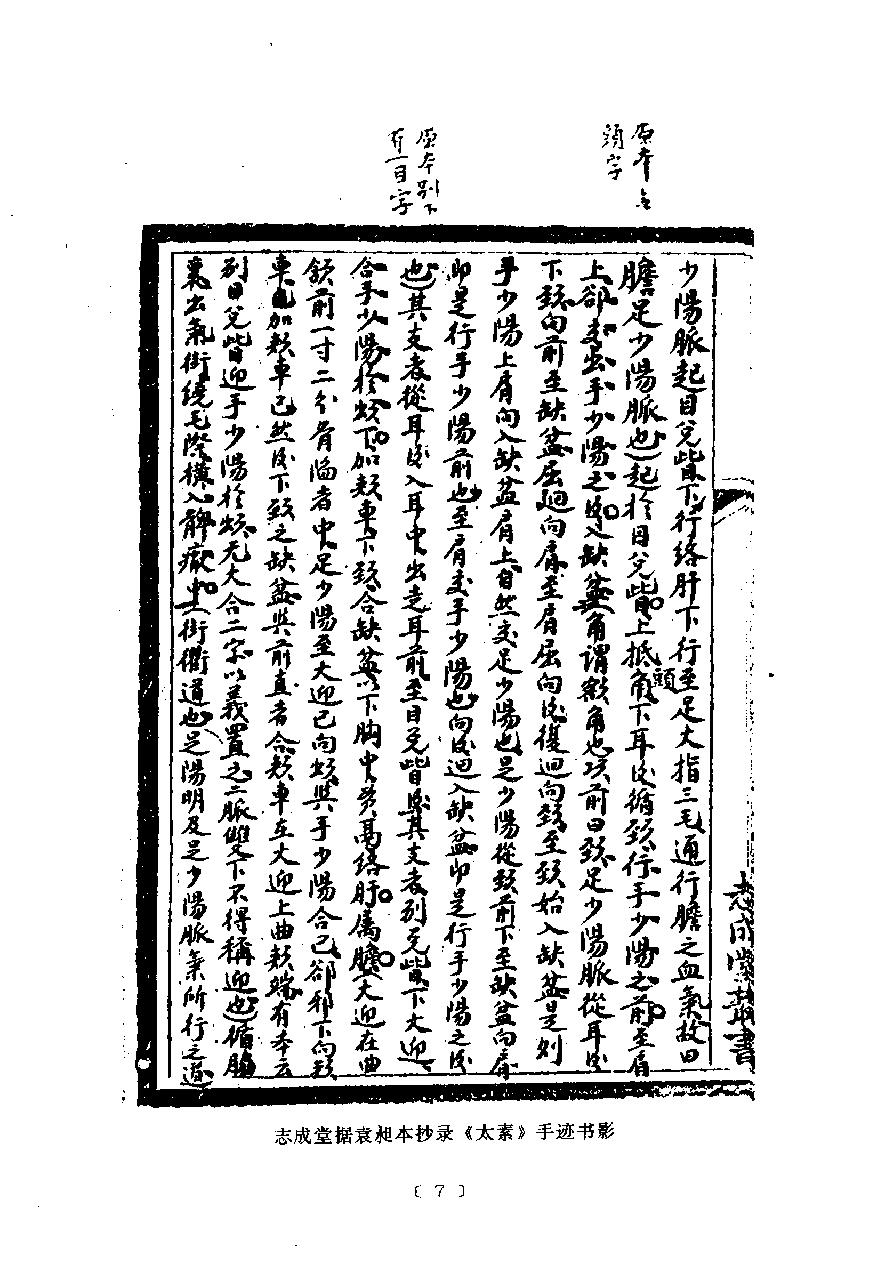 原本無
頭字
原本别下
有一目字
少陽脈起目兌眥下行絡肝下行至足大指三毛通行膽之血氣故曰
膽足少陽脈也起於目兌眥上抵角下耳後循頸行手少陽之前至肩
頭
上卻交出手少陽之後入缺盆角謂額角也項前曰頸足少陽脈從耳後
下頸向前至缺盆屈迴向肩至肩屈向後復迴向頸至頸始入缺盆是則
手少陽上肩向入缺盆肩上自然交足少陽也足少陽從頸前下至缺盆向肩
即是行手少陽前也至肩交手少陽也向後迴入缺盆即是行手少陽之後
也其支者從耳後入耳中出走耳前至目兌眥後其支者别兌眥下大迎
合手少陽於䪼下加頰車下頸合缺盆以下胸中貫鬲絡肝屬膽大迎在曲
頷前一寸二分骨陷者中足少陽至大迎已向䪼與手少陽合已卻邪下向頸
車加頰車已然後下頸之缺盆與前直者合頰車在大迎上曲頰端有本云
别目兌眥迎手少陽於䪼无大合二字以義置之二脈雙下不得稱迎也循脇
裏出氣街繞毛際橫入髀厭中街衢道也足陽明及足少陽脈氣所行之道
志成堂叢書
志成堂据袁昶本抄录《太素》手迹书影
〔7〕